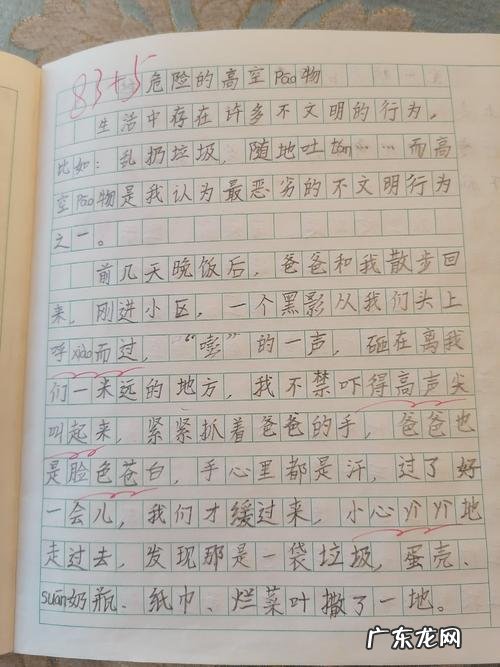 83+5 危险的高空Pāo物
生活中存在许多不文明的行为。
比如：乱扔垃圾，随地吐tán……而高
空Pāo物是我认为最恶劣的不文明行为
之一。
前几天晚饭后，爸爸和我散步回
来，刚进小区，一个黑影从我们头上
呼xiào而过，“嘭”的一声，砸在离我
们一米远的地方，我不禁吓得高声尖
叫起来，紧紧抓着爸爸的手，爸爸也
是脸色苍白，手心里都是汗，过了好
一会儿，我们才缓过来，小心yì yì地
走过去，发现那是一袋垃圾，蛋壳、
suān奶瓶、纸巾、烂菜叶撒了一地。
广东龙网